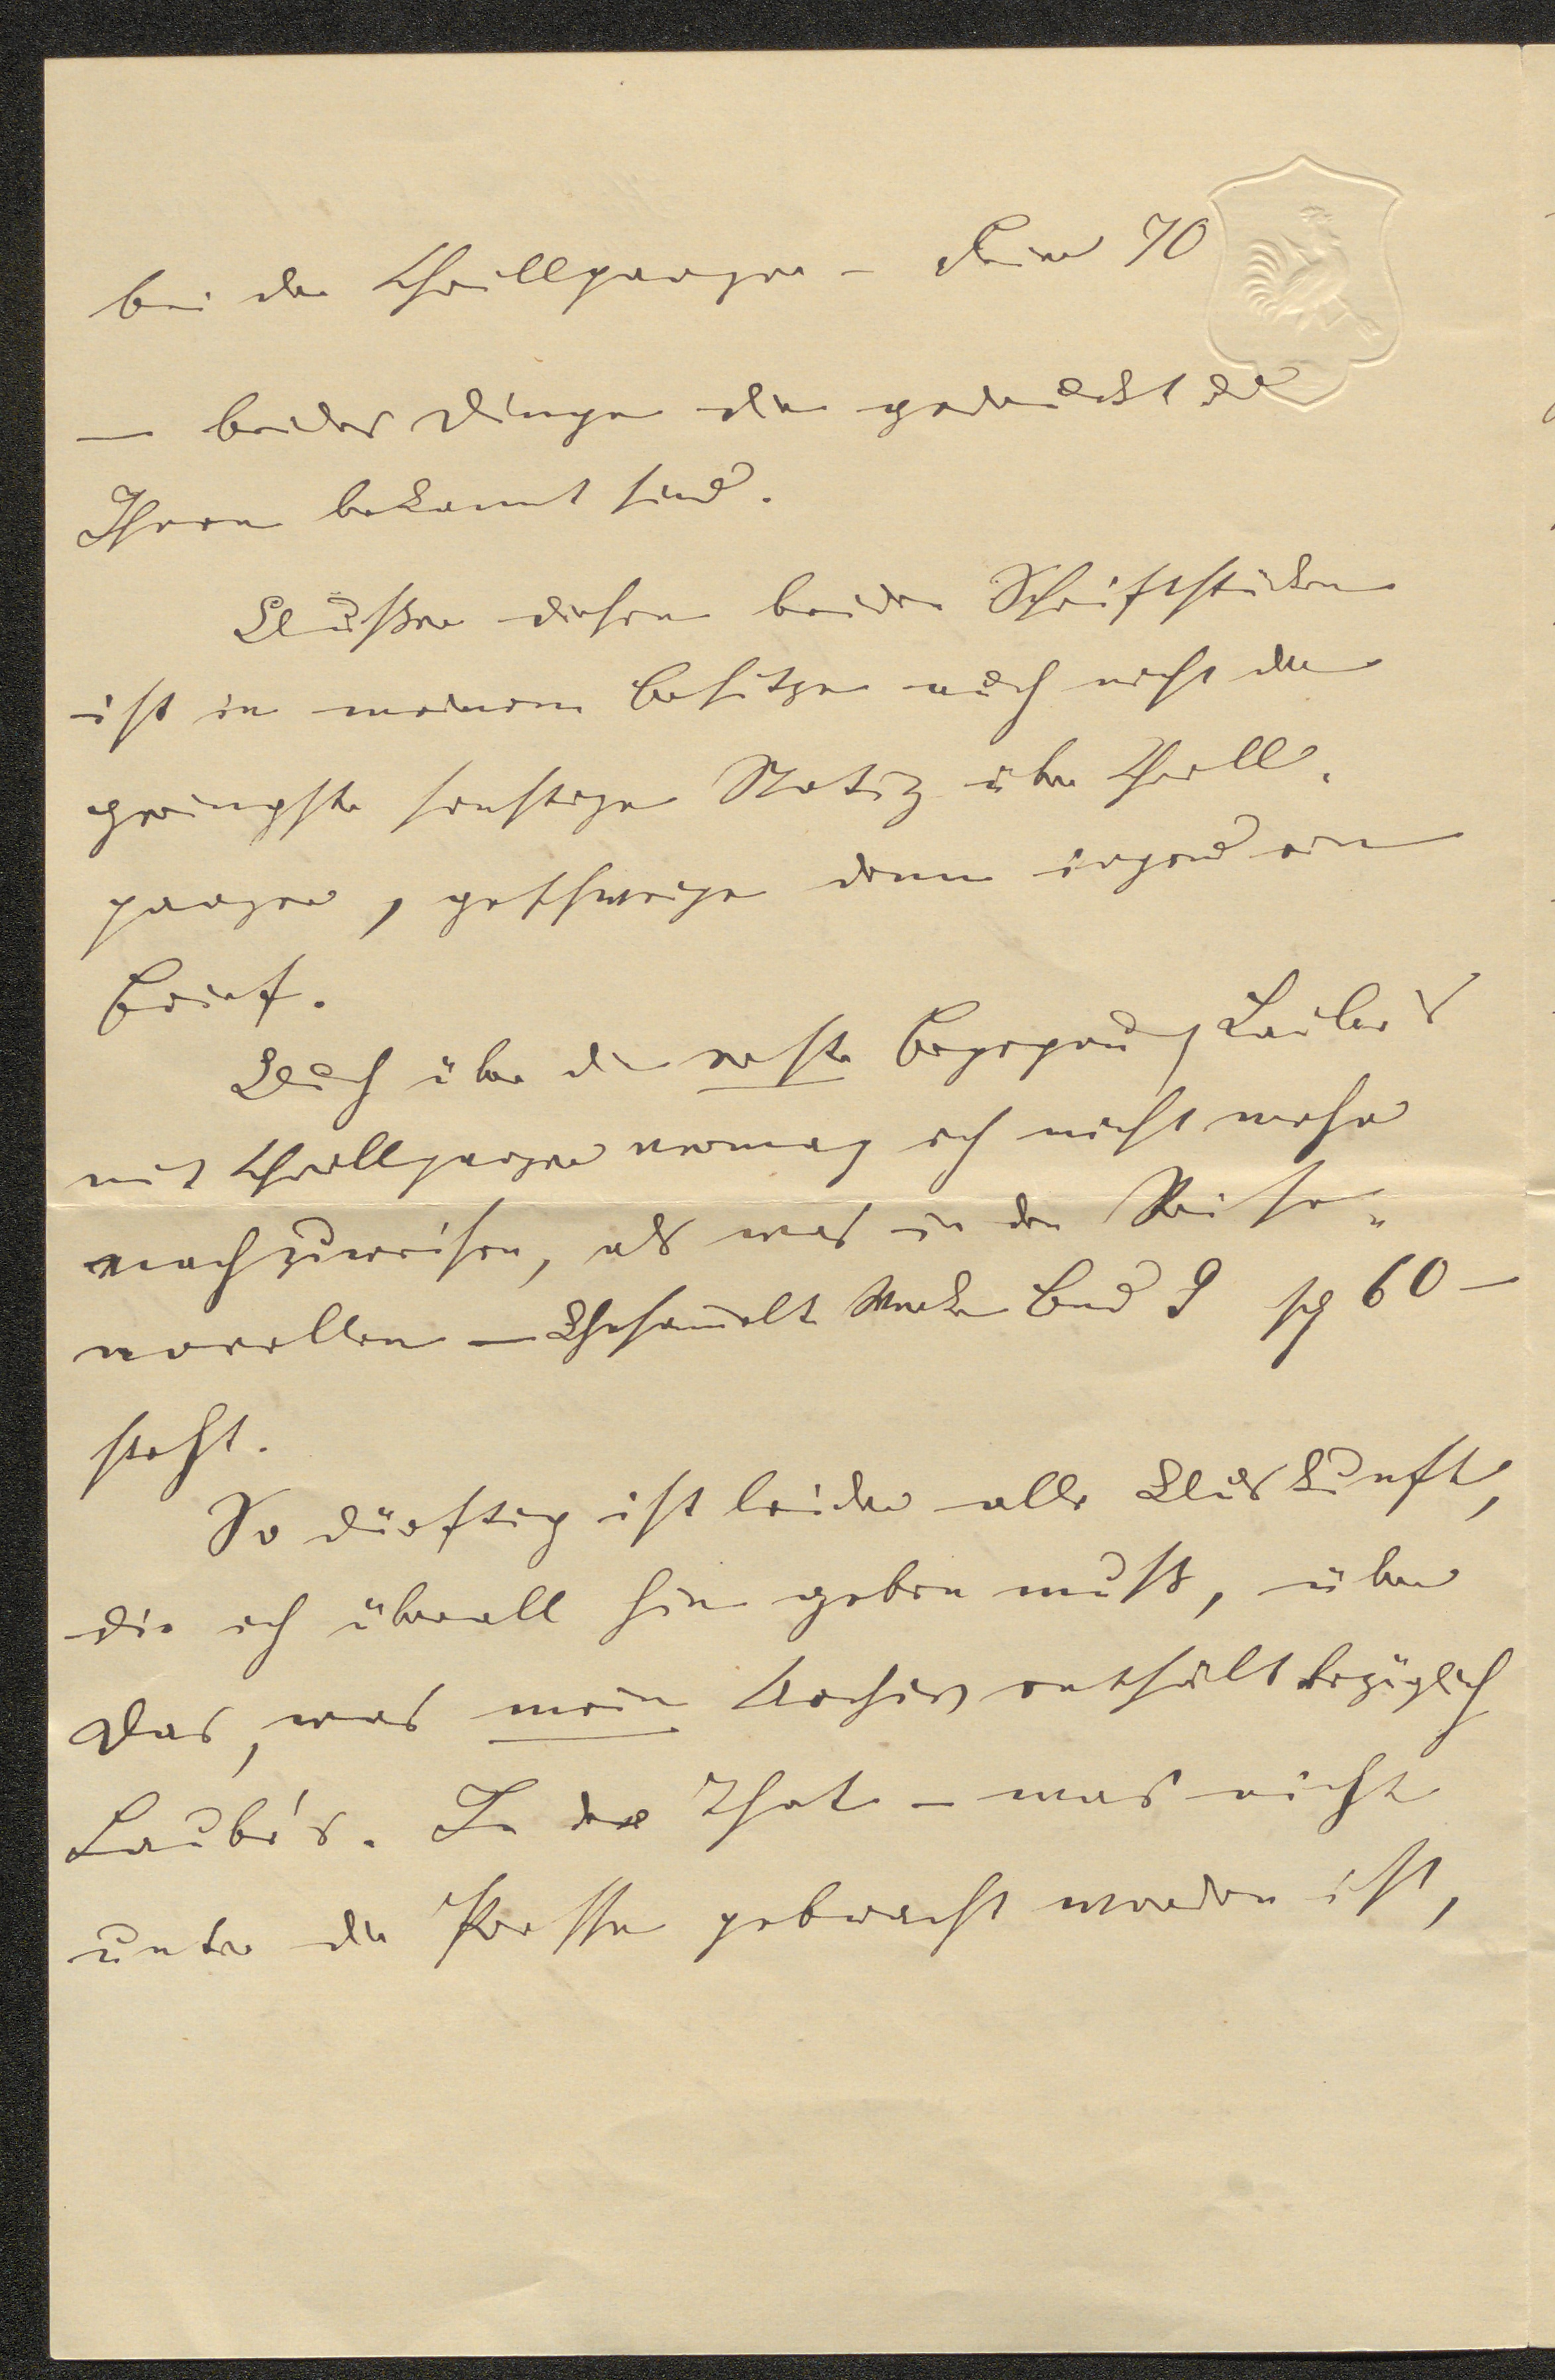 bei der Grillparzer - Feier 70
— beides Dinge die gedruckt u
Ihnen bekannt sind.
Außer diesen beiden Schriftstücken
ist in meinem Besitze auch nicht die
geringste sonstige Notiz über Grill-
parzer, geschweige denn irgend ein
Brief.
Auch über die erste Begegnung Laube's
mit Grillparzer vermag ich nicht mehr
nachzuweisen, als was in den Reise-
novellen — Gesammelt Werke Band 9 sg 60 —
steht.
So dürftig ist leider alle Auskunft,
die ich überall hin geben muß, über
Das, was mein Archiv enthält bezüglich
Laube's. In der That – was nicht
unter die Presse gebracht worden ist,